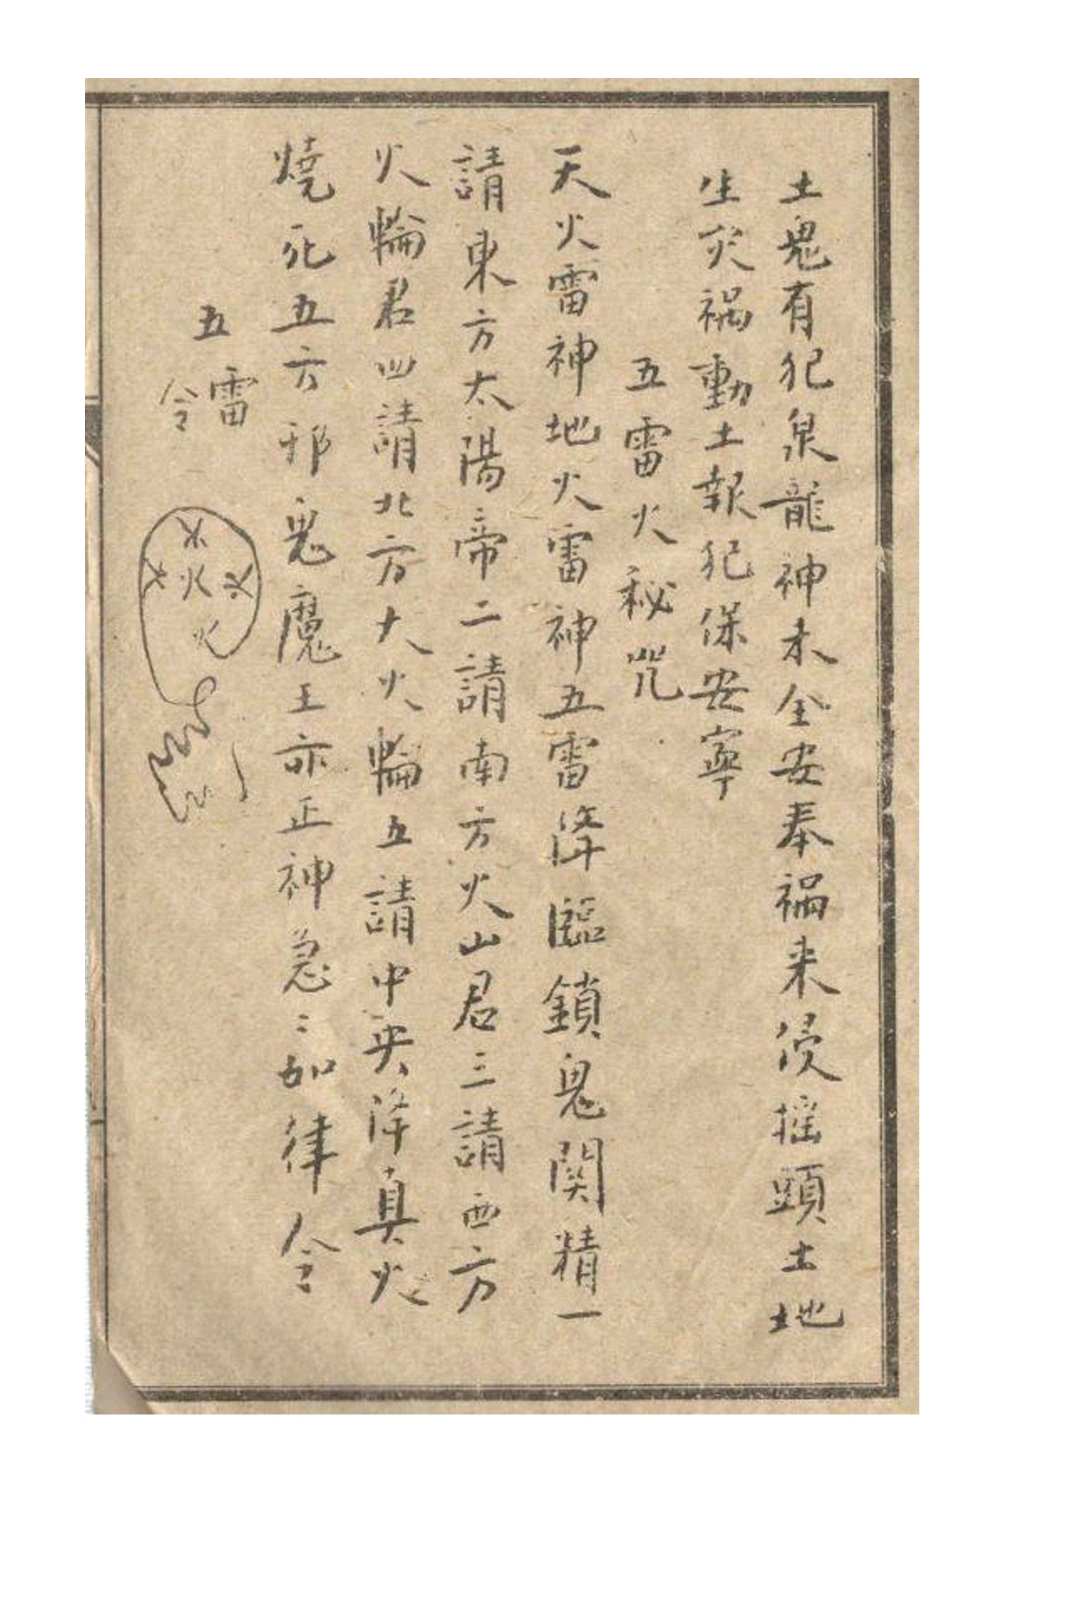 土鬼有犯泉龍神未全安奉禍来侵摇頭土地
生灾禍動土報犯保安寧
五雷火秘咒
天火雷神地火雷神五雷降臨鎖鬼関精一
請東方太陽帝二請南方火山君三請西方
火輪君四請北方大火輪五請中央降真火
燒死五方邪鬼魔王亦正神急〻如律令
五雷
令
火
火火火
火